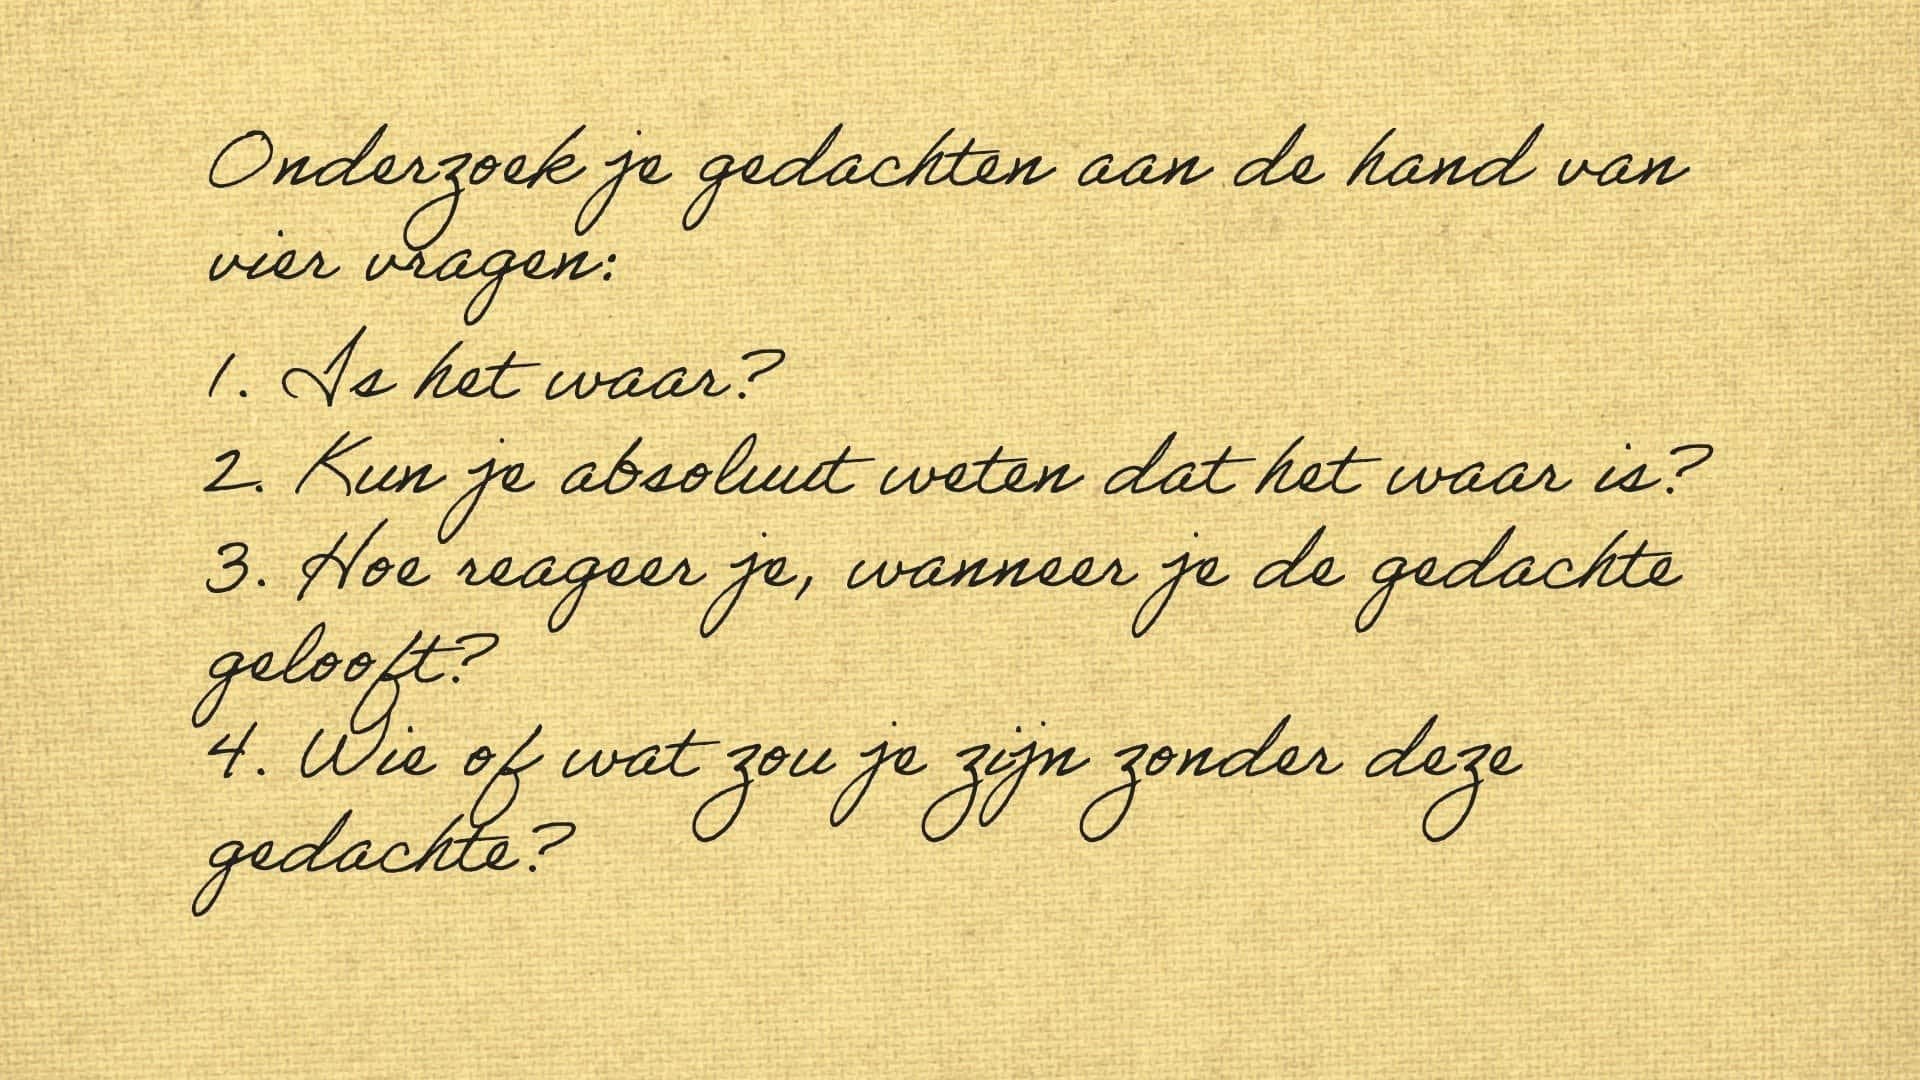 Onderzoek je gedachten aan de hand van
vier vragen:
1. Is het waar?
2. Kun je absoluut weten dat het waar is?
3. Hoe reageer je, wanneer je de gedachte
gelooft?
4. Wie of wat zou je zijn zonder deze
gedachte?